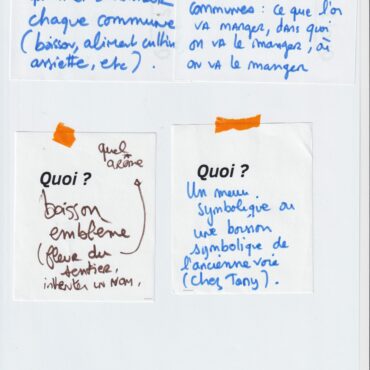 chaque commune
(boisson, aliment cultiv
assiette, etc).
communes : ce que l'on
va manger, dans quoi
on va le manger, où
on va le manger
Quoi ?
quel
arôme
boisson
emblème
(fleur du
sentier,
inventer un nom,
Quoi ?
Un menu
symbolique ou
une boisson
symbolique de
l'ancienne voie
(Chez Tany).